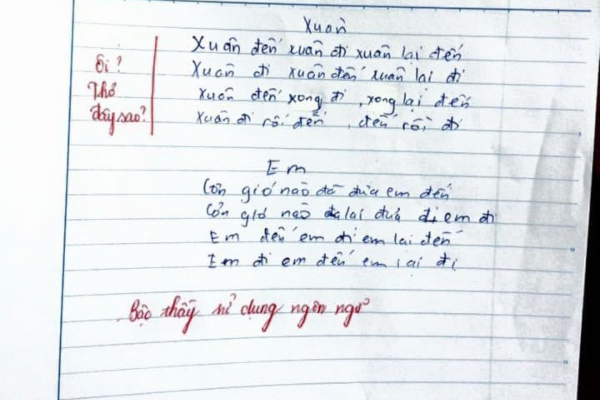 Xuân
Xuân đến xuân đi xuân lại đến
Xuân đi xuân đến xuân lại đi
Xuân đến xong đi, xong lại đến
Xuân đi rồi đến, đến rồi đi
Ôi?
Thơ
đây sao?
Em
Cơn gió nào đã đưa em đến
Cơn gió nào đa lại đưa đi em đi
Em đến em đi em lại đến
Em đi em đến em lại đi
Bậc thầy sử dụng ngôn ngữ